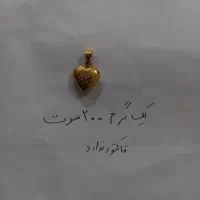 یک گرم ۲۰۰ سوت
فاکتور ندارد